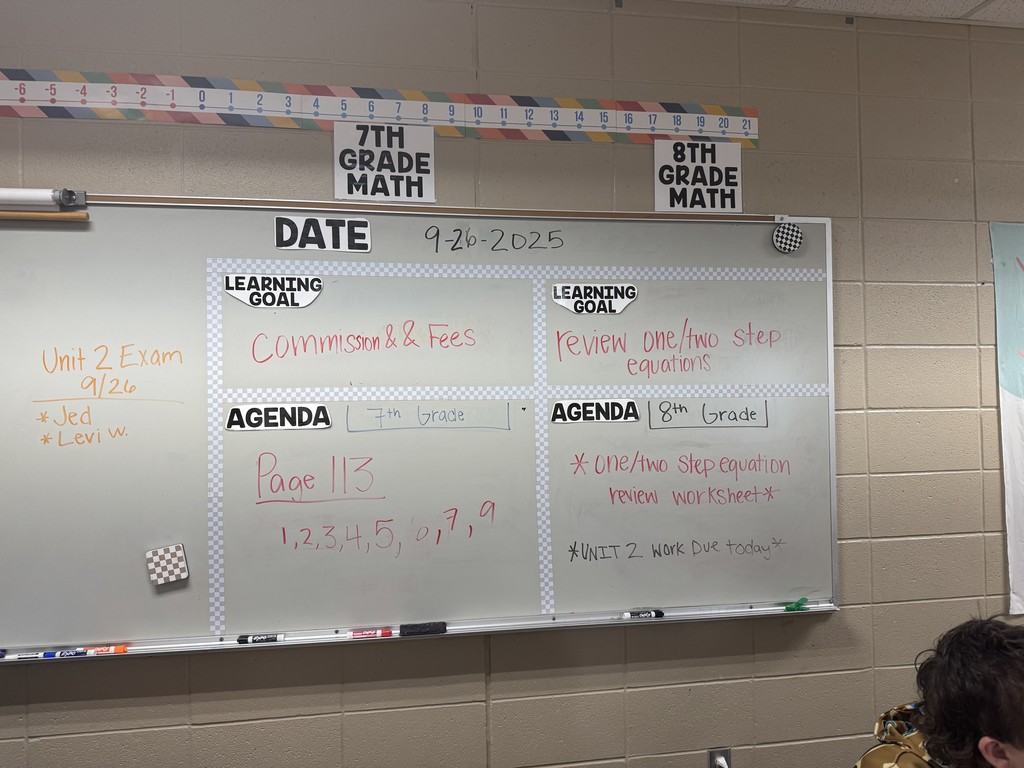 -6 -5 -4 -3 -2 -1 0 1 2 3 4 5 6 7 8 9 10 11 12 13 14 15 16 17 18 19 20 21
7TH
GRADE
MATH
8TH
GRADE
MATH
DATE 9-26-2025
LEARNING
GOAL
Commission & & Fees
LEARNING
GOAL
review one/two step
equations
Unit 2 Exam
9/26
* Jed
* Levi W.
AGENDA 7th Grade
Page 113
1, 2, 3, 4, 5, 6, 7, 9
AGENDA 8th Grade
* One/two step equation
review worksheet *
*UNIT 2 Work Due today*